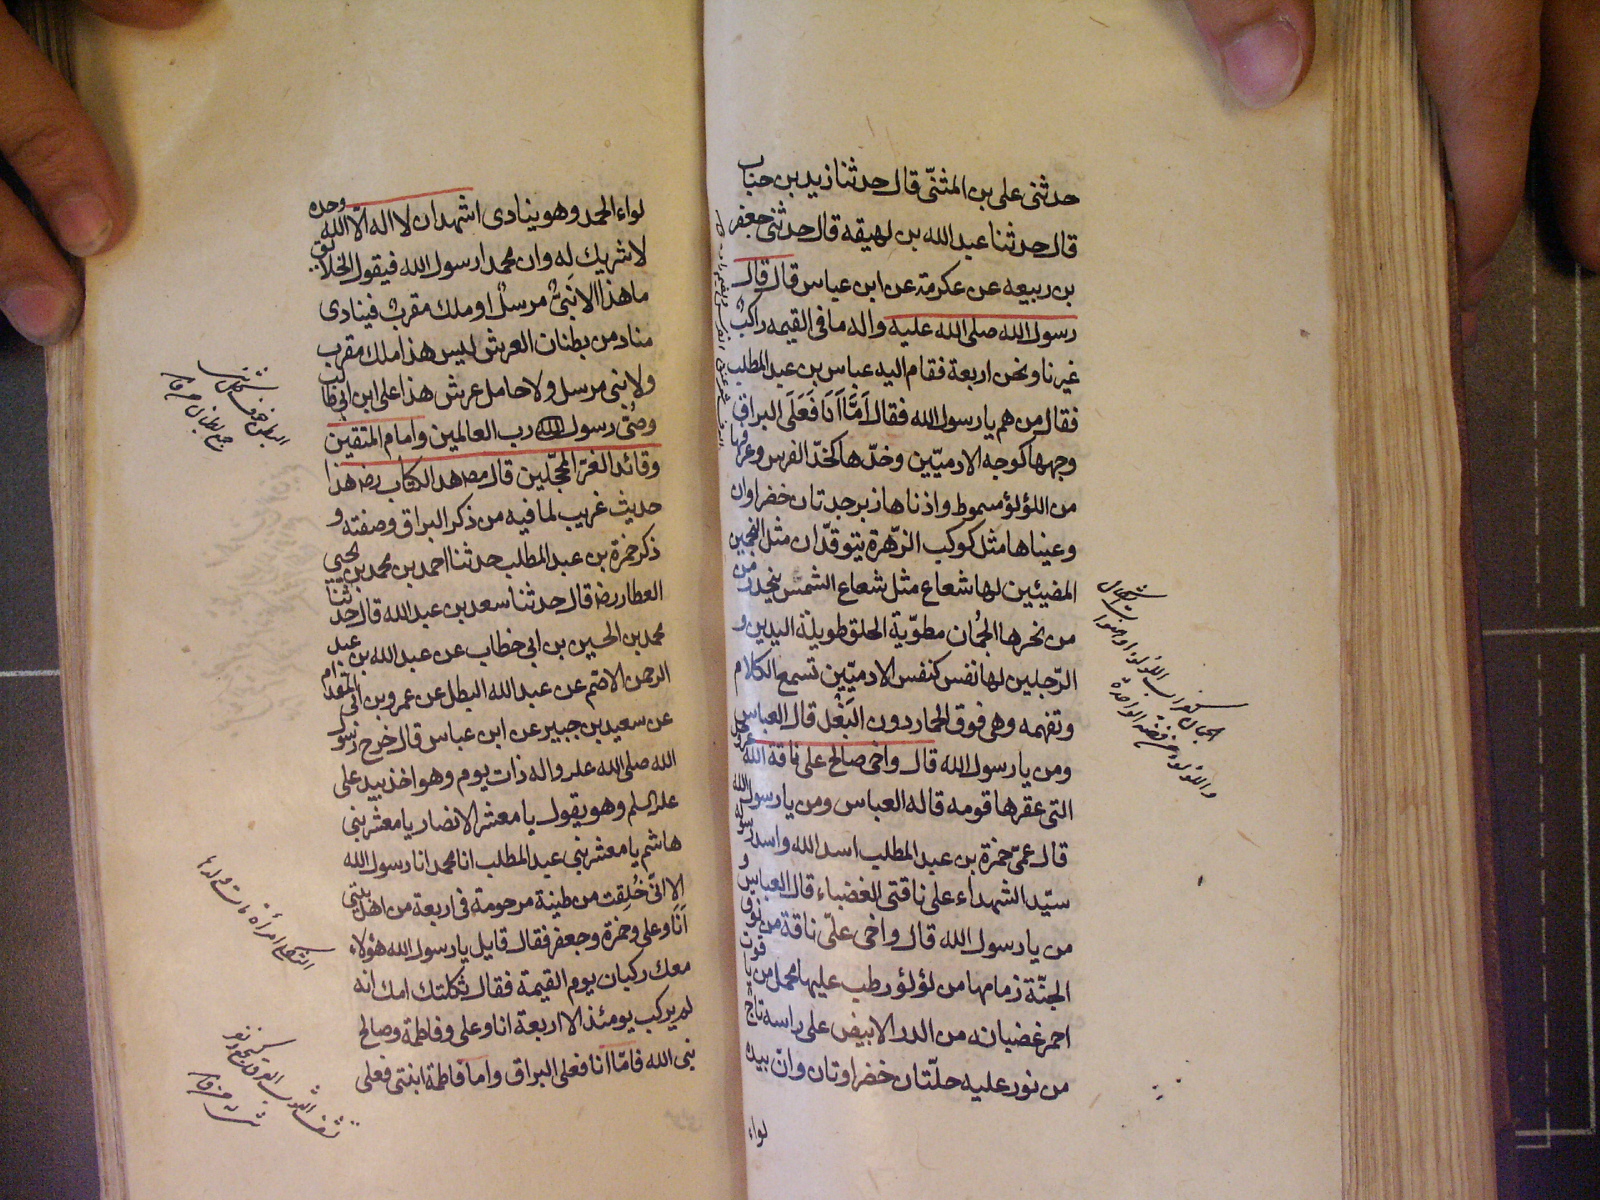 حدثنى على بن المثنّى قال حدثنا زيد بن حباب
قال حدثنا عبد الله بن لهيقه قال حدثنى جعفر
بن ربيعه عن عكرمة عن ابن عباس قال قال
رسول الله صلى الله عليه واله ما فى القيمه راكبٌ
غيرنا ونحن اربعة فقام اليه عباس بن عبد المطلب
فقال من هم يا رسول الله فقال اَمَّا اَنَا فَعَلَى البراق
وجهها كوجه الادميّين وخدّها كخدّ الفرس وعرفها
من اللؤلؤ مسموط واذناها زبرجدتان خضراوان
وعيناها مثل كوكب الزّهرة يتوقدّان مثل النجمين
المضيئين لها شعاع مثل شعاع الشمس ينحدر من
من نحرها الجُمان مطوّية الحلق طويلة اليدين و
الرّجلين لها نفس كنفس الادميّين تسمع الكلام
وتفهمه وهى فوق الحمار دون البَغْل قال العباس
ومن يا رسول الله قال واخى صالح على ناقة الله عزوجل
التى عقرها قومه قاله العباس ومن يا رسول الله
قال عمّى حمزة بن عبد المطلب اسد الله واسد رسوله
سيّد الشهداء على ناقتى الغضباء قال العباس و
من يا رسول الله قال واخى علىّ ناقة من نوق
الجنّة زمامها من لؤلؤ رطب عليها محمل من ياقوت
احمر غضبانه من الدر الابيض على راسه تاج
من نور عليه حلّتان خضراوتان وان بيده
لواء
لواء الحمد وهو ينادى اشهد ان لا اله الّا الله وحده
لا شريك له وان محمدا رسول الله فيقول الخلائق
ما هذا الا نبىٌّ مرسلٌ او ملك مقربٌ فينادى
مناد من بطنان العرش ليس هذا ملك مقرب
ولا نبى مرسل ولا حامل عرش هذا على ابن ابى طالب
وصىّ رسول الله رب العالمين وامام المتقين
وقائد الغرّ المحجّلين قال مصـ هذ الكتاب رضـ هذا
حديث غريب لما فيه من ذكر البراق وصفته و
ذكر حمزة بن عبد المطلب حدثنا احمد بن محمد بن يحيى
العطار رضـ قال حدثنا سعد بن عبد الله قال حدثنا
محمد بن الحسين بن ابى خطاب عن عبد الله بن عبد
الرحمن الاصّم عن عبد الله البطل عن عمرو بن ابى المقدام
عن سعيد بن جبير عن ابن عباس قال خرج رسول
الله صلى الله علـ واله ذات يوم وهو اخذ بيد على
علـ السلم وهو يقول يا معشر الانصار يا معشر بنى
هاشم يا معشر بنى عبد المطلب انا محمد انا رسول الله
الا انّى خُلِقت من طينة مرحومة فى اربعة من اهل بيتى
اَنَا وعلى وحمزة وجعفر فقال قايل يا رسول الله هؤلاء
معك ركبان يوم القيمة فقال ثكلتك امك انه
لم يركب يومئذ الا اربعة انا وعلى وفاطمة وصالح
نبى الله فامّا انا فعلى البراق واما فاطمة ابنتى فعلى